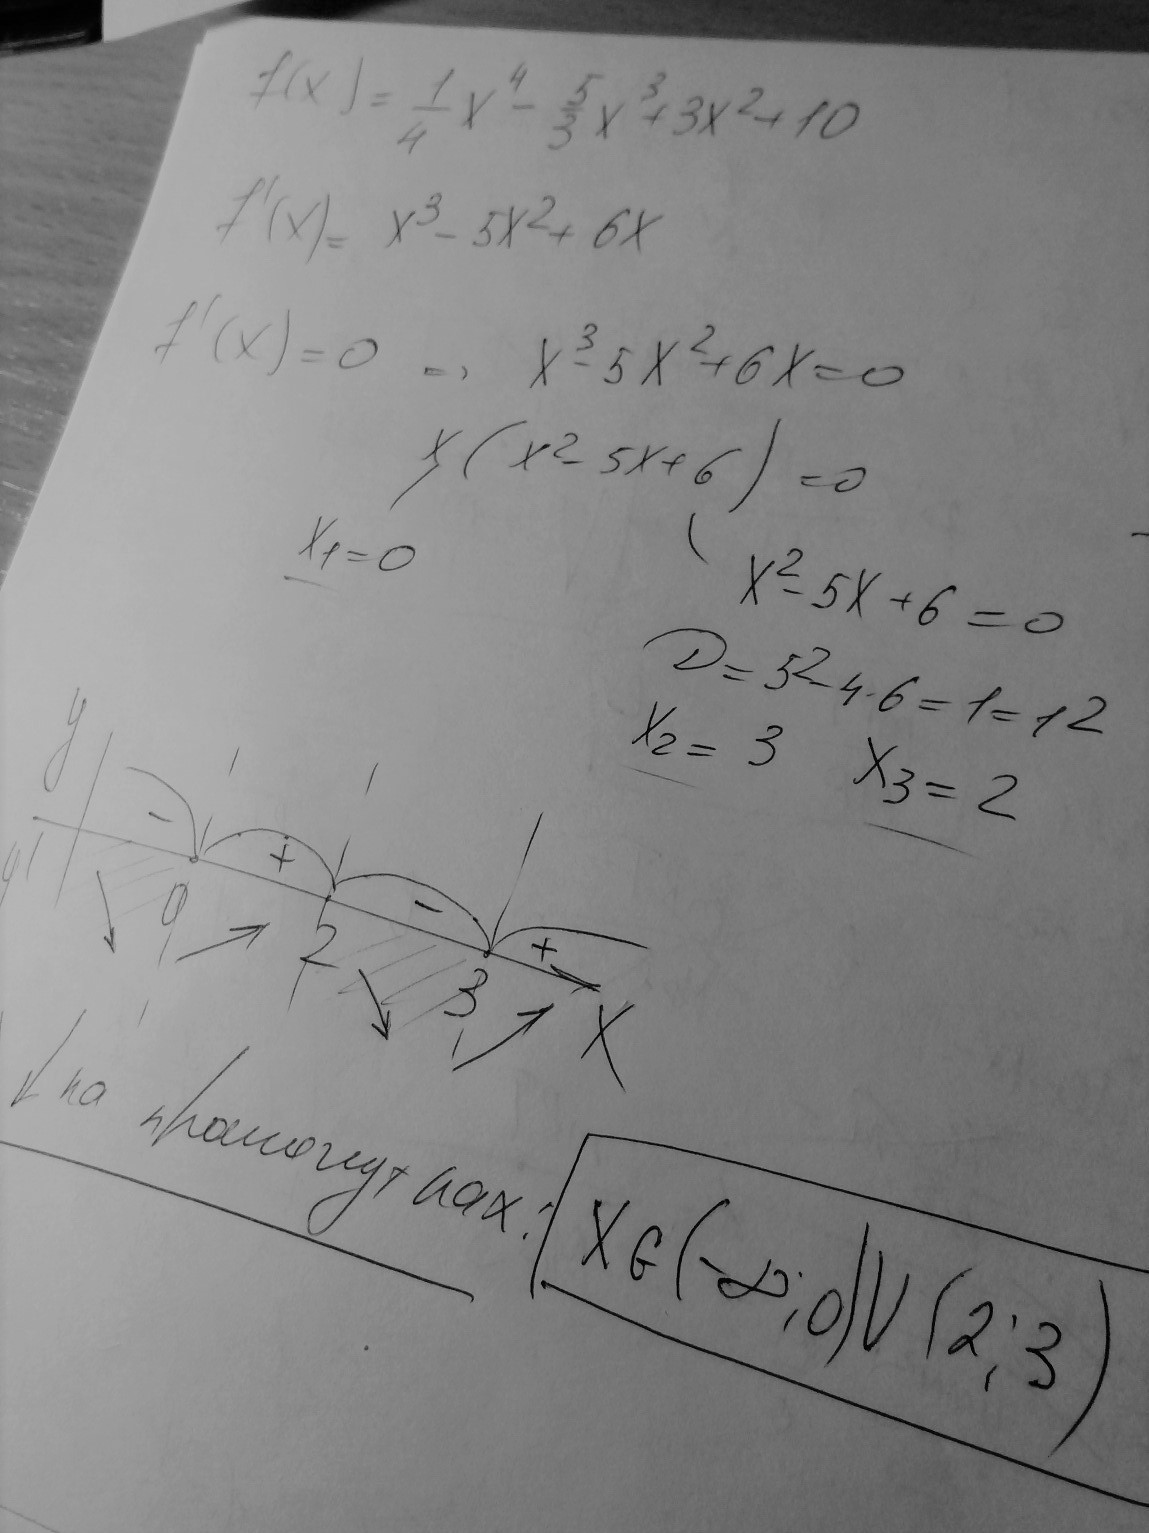 f(x) = 1/4 x⁴ - 5/3 x³ + 3x² + 10
f'(x) = x³ - 5x² + 6x
f'(x) = 0 => x³ - 5x² + 6x = 0
x(x² - 5x + 6) = 0
x₁ = 0
x² - 5x + 6 = 0
D = 5² - 4·6 = 1 = 1²
x₂ = 3 x₃ = 2
y
- + - +
y'
0 2 3 X
↓ на промежутках: x∈(-∞;0)∪(2;3)